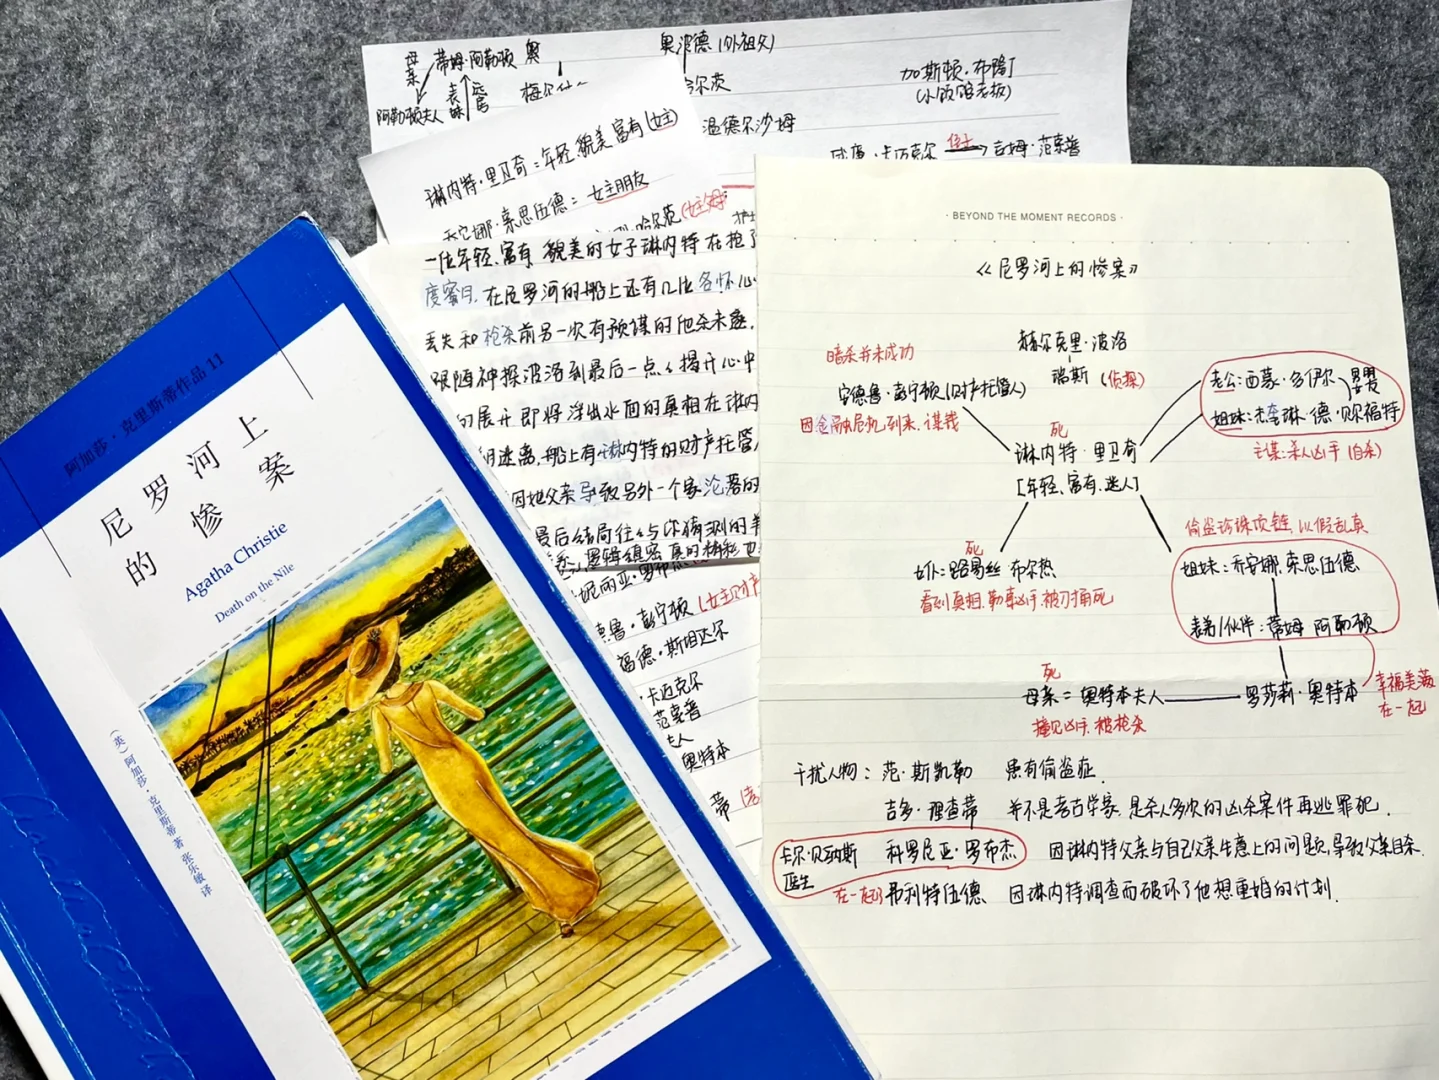 母亲
蒂姆·阿勒顿
阿勒顿夫人
表妹
奥波德(外祖父)
加斯顿·布隆丁
(小饭馆老板)
温德尔沙姆
威廉·卡迈克尔
侄子
吉姆·范索普
琳内特·里卫奇=年轻貌美富有(女主)
乔安娜·索思伍德=女主朋友
哈尔茨(女主母
一位年轻、富有、貌美的女子琳内特在抢了
度蜜月,在尼罗河的船上还有几比各怀心
丢失和枪杀前另一次有预谋的他杀未遂,
跟随神探波洛到最后一点々揭开心中
展开即将浮出水面的真相在琳内
迷离,船上有琳内特的财产托管人
因她父亲导致另外一个家沦落的
最后结局往々与你猜测的
逻辑缜密真的精彩
德鲁·彭宁顿(女主财产
福德·斯坦达尔
·卡迈克尔
范索普
夫人
奥特本
蒂
阿加莎·克里斯蒂作品 11
尼罗河上
的惨案
Agatha Christie
Death on the Nile
(英)阿加莎·克里斯蒂 著 张乐敏 译
· BEYOND THE MOMENT RECORDS ·
《尼罗河上的惨案》
赫尔克里·波洛
瑞斯 (侦探)
暗杀并未成功
安德鲁·彭宁顿(财产托管人)
因金融危机到来、谋钱
死
琳内特·里卫奇
[年轻、富有、迷人]
老公:西蒙·多伊尔
姐妹:杰奎琳·德·贝尔福特
主谋:杀人凶手(自杀)
偷盗珍珠项链,以假乱真
姐妹:乔安娜·索思伍德
表弟/伙伴:蒂姆 阿勒顿
死
女仆:路易丝 布尔热
看到真相.勒索凶手.被刀捅死
死
母亲=奥特本夫人
罗莎莉·奥特本
撞见凶手、被枪杀
幸福美满
在一起
干扰人物: 范·斯凯勒 患有偷盗症.
吉多·理查蒂 并不是考古学家,是杀人多次的凶杀案件再逃罪犯.
卡尔·贝斯纳 科罗尼亚·罗布杰 因琳内特父亲与自己父亲生意上的问题,导致父亲自杀.
医生
在一起 弗利特伍德 因琳内特调查而破坏了他想重婚的计划.